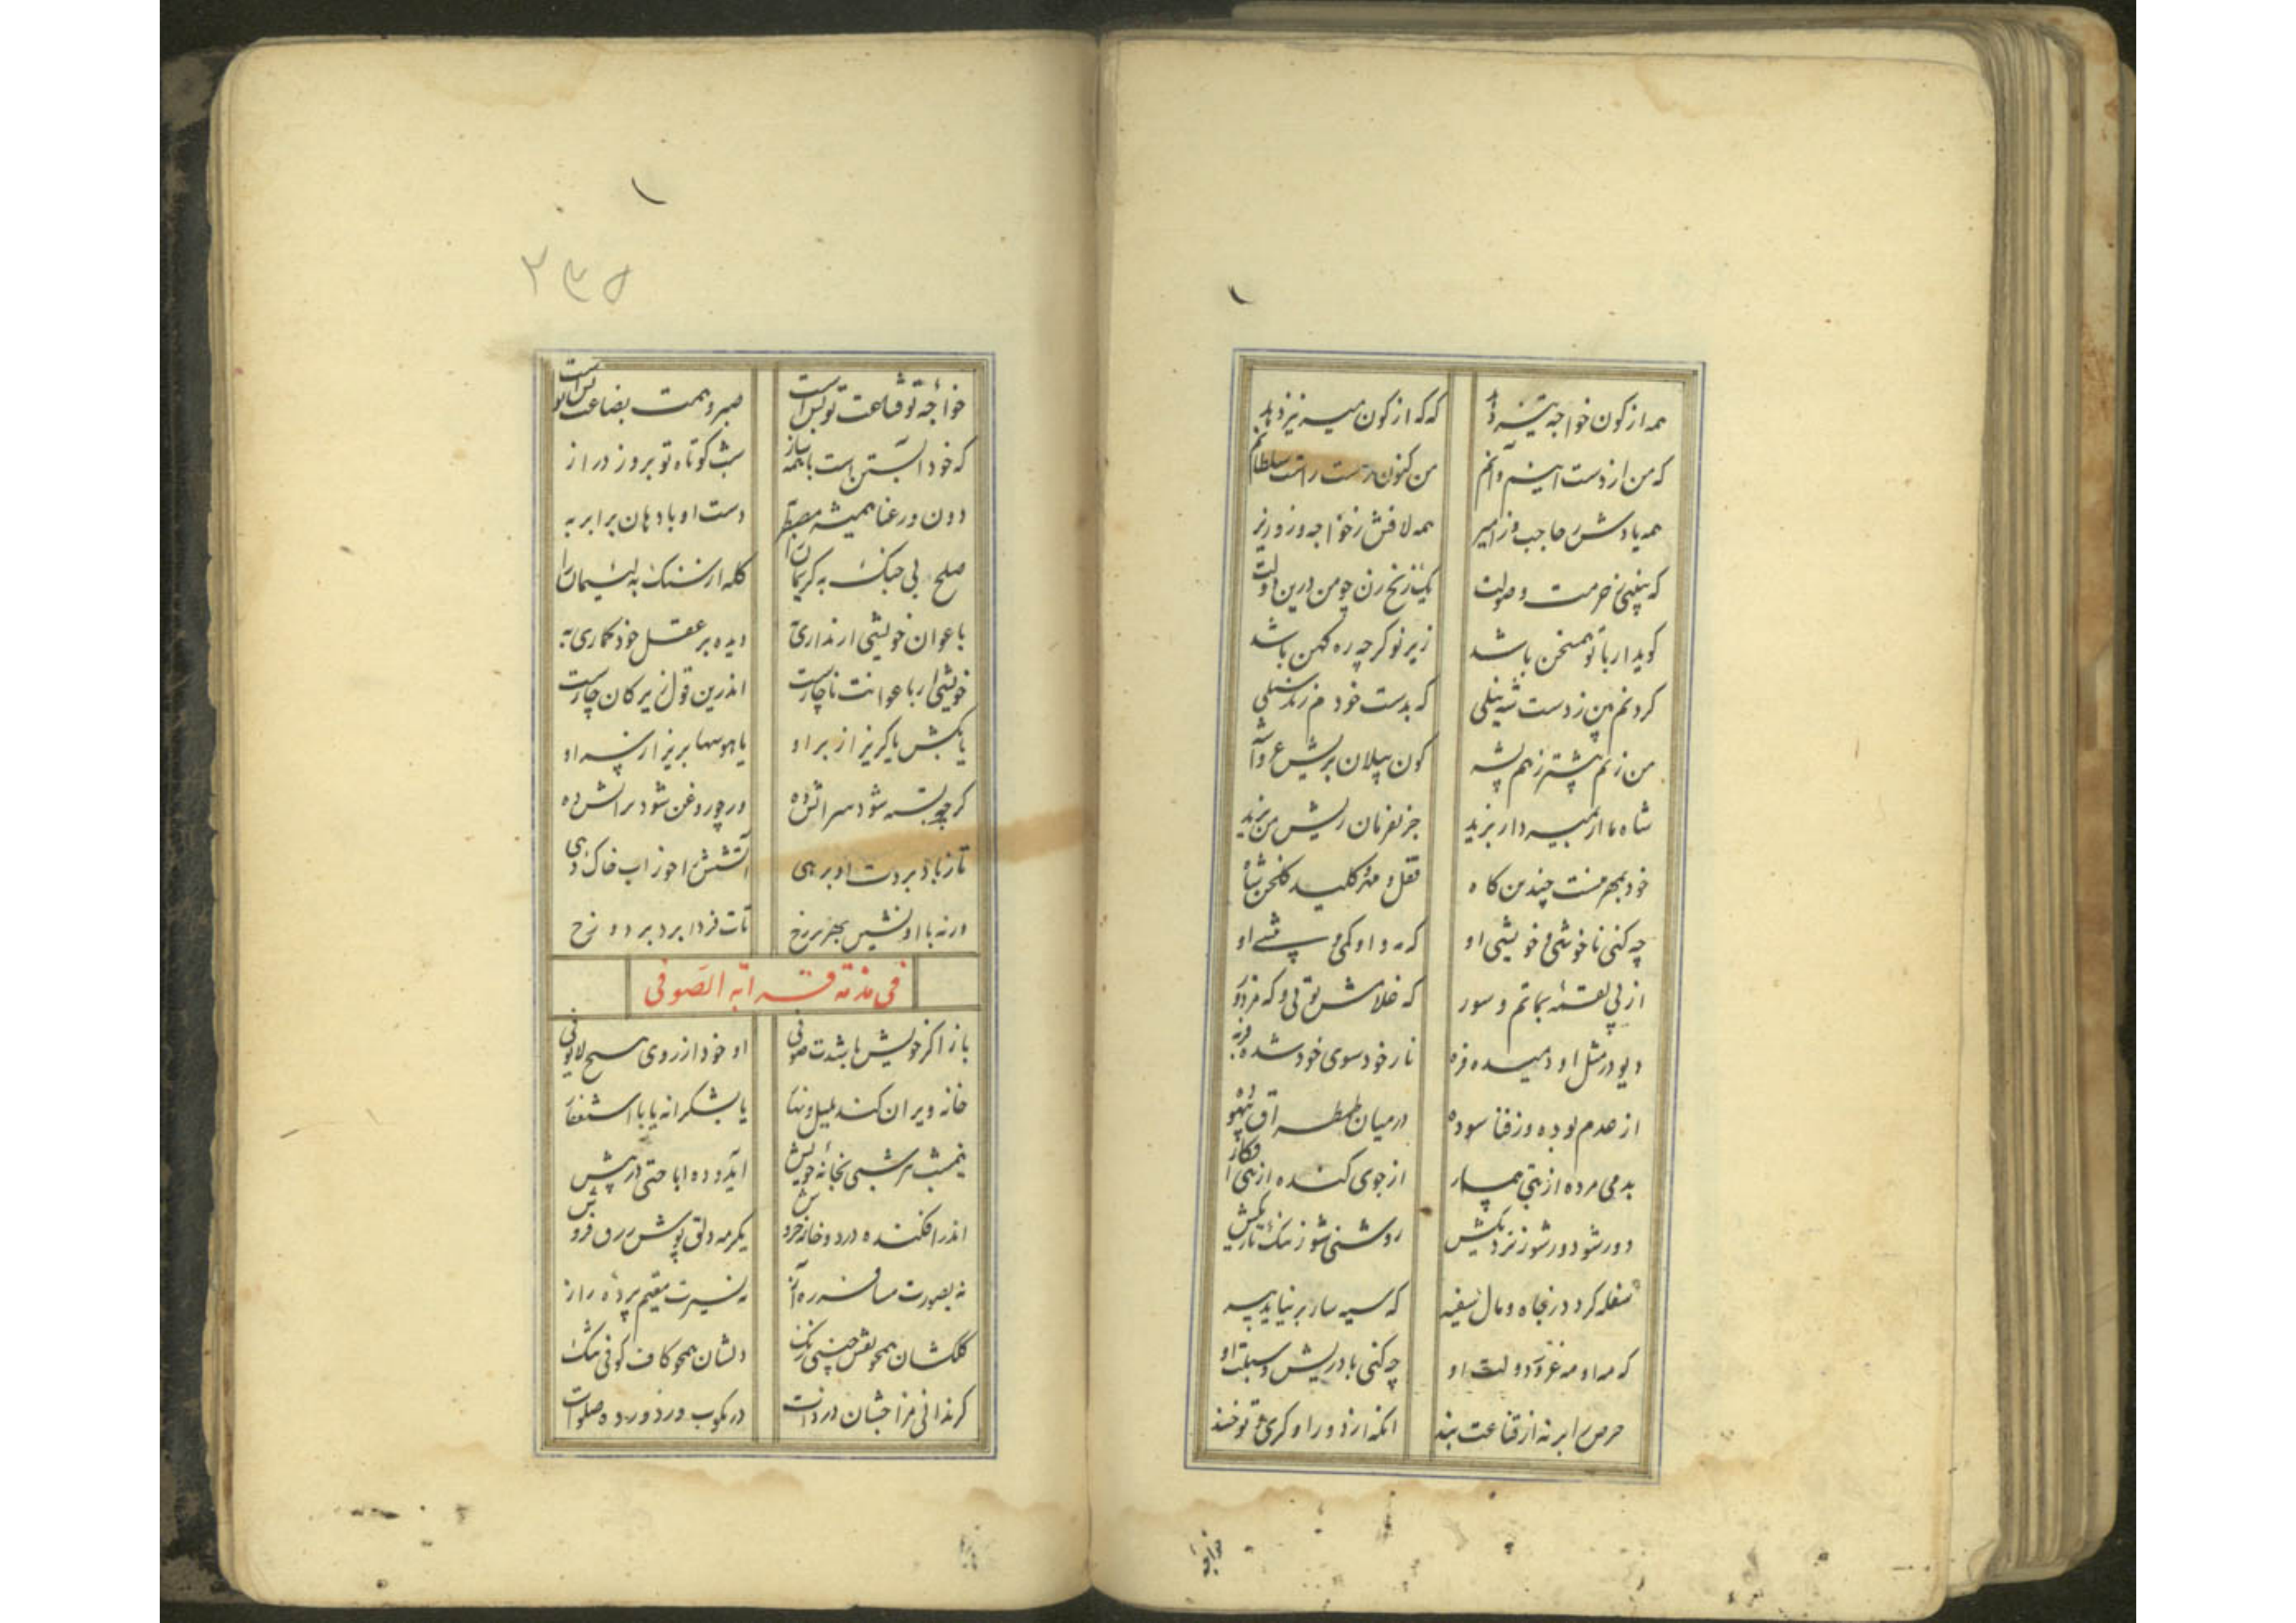 همه از کون خواجه تیز دهد
که که از کون میر نیز دهد
که من از دست اینم و آنم
من کنون دست راست سلطانم
همه یادش ز حاجب و ز امیر
همه لافش ز خواجه و ز وزیر
که ببینی حرمت و صولت
یک زنخ زن چو من درین دولت
کوید ار با تو همسخن باشد
زیر نو کرچه ره کهن باشد
کردنم من ز دست شه سیلی
که بدست خودم زند سیلی
من زنم پیشتر ز هم پشه
کون پیلان بریش
شاه ما ار نمیه دار بزید
جز نفرمان ریش من نرید
خود بمهر منست چندین کاه
قفل و کلید کلخن شاه
چه کنی ناخوشی و خویشی او
که مه او که مه پیشی او
از پی لقمهٔ بماتم و سور
که غلامش توئی و که مزدور
دیو در مثل او دمیده فره
نار خود سوی خود شده
از عدم بوده وز فنا سوده
در میان طمطراق بیهوده
بدمی مرده از تبی بیمار
از جوی کنده از تبی افکار
دور شو دور شو ز نزدیکیش
روشنی شو ز ننک تاریکیش
سفله کردد ز جاه و مال سفیه
که سیه سار بر نیاید پیه
که مه او مه عز و دولت او
چه کنی باد ریش و سبلت او
حرص را بر نه از قناعت بند
آنکه از دور او کری تو خند
خواجه
۱
۱
۲۳۵
خواجه تو قناعت تو بس است
صبر و همت بضاعت تو بس است
که خود آبستن است با همه ساز
شب کوتاه تو بروز دراز
دون و رعنا همیشه مضطر به
دست او با دهان برابر به
صلح بی جنک به کریمان را
کله از سنک به لئیمان را
با عوان خویشی ار نداری به
دیده بر عقل خود کماری به
خویشی ار با عوانت ناچارست
اندرین قول زیرکان چارست
یا بکش یا کریز از بر او
یا هوسها بریز از سر او
کر چو پسته شود سرانش ده
ور چو روغن شود برانش ده
تا ز باد بروت او برهی
آتشش را جوز آب خاک دهی
ورنه با او نشین بهر برزخ
تات فردا برد بدوزخ
فی مذمة قرابة الصوفی
باز اکر خویش باشدت صوفی
او خود از روی مسح لایوفی
خانه ویران کند بلیل و نهار
یا بشکرانه یا باستغفار
نیمشب هر شبی بخانهٔ خویش
آید و ده اباحتی در پیش
اندر افکنده در دو خانه خروش
یکرمه دلق پوش زرق فروش
نه بصورت مسافر ره آز
نه بسیرت مقیم پردهٔ راز
کلکشان همچو نقش چینی رنک
دلشان همچو کاف کوفی تنک
کر ندانی مزاجشان در ذات
در رکوب و رد و رد و صلوات